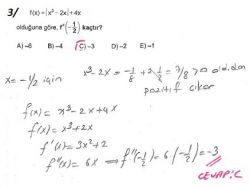 3/ f(x) = |x³ - 2x| + 4x
olduğuna göre, f''(-1/2) kaçtır?
A) -6 B) -4 C) -3 D) -2 E) -1
x = -1/2 için x³ - 2x = -1/8 + 2·1/2 = 7/8 > 0 olduğundan
pozitif çıkar
f(x) = x³ - 2x + 4x
f(x) = x³ + 2x
f'(x) = 3x² + 2
f''(x) = 6x ⇒ f''(-1/2) = 6·(-1/2) = -3
CEVAP: C